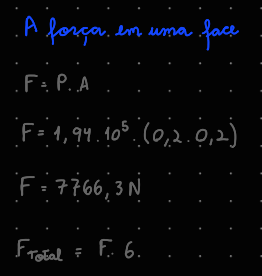 A força em uma face
F = P. A
F = 1,94.10⁵.(0,2.0,2)
F = 7766,3 N
F_Total = F. 6.